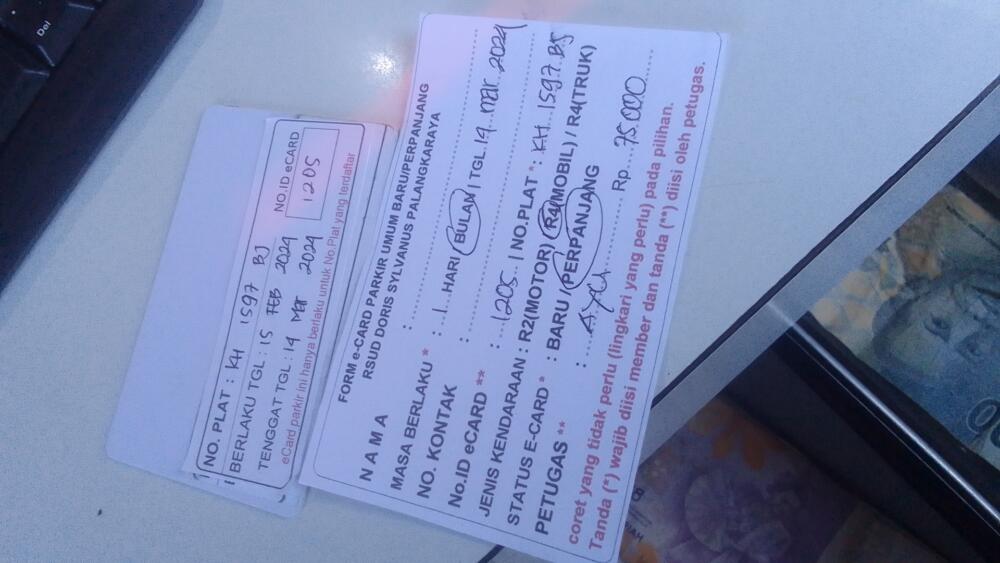 NO. PLAT : KH 1597 BJ
BERLAKU TGL : 15 FEB 2024
TENGGAT TGL : 14 Mar 2024
eCard parkir ini hanya berlaku untuk No.Plat yang terdaftar
NO.ID eCARD
1205
FORM e-CARD PARKIR UMUM BARU/PERPANJANG
RSUD DORIS SYLVANUS PALANGKARAYA
N A M A :
MASA BERLAKU * : 1 HARI / BULAN / TGL. 14 mar 2024
NO. KONTAK :
No.ID eCARD ** : 1205 / NO.PLAT * : KH 1597 BJ
JENIS KENDARAAN : R2(MOTOR) / R4(MOBIL) / R4(TRUK)
STATUS E-CARD * : BARU / PERPANJANG
PETUGAS ** : Rp. 75.000
coret yang tidak perlu (lingkari yang perlu) pada pilihan.
Tanda (*) wajib diisi member dan tanda (**) diisi oleh petugas.
Del